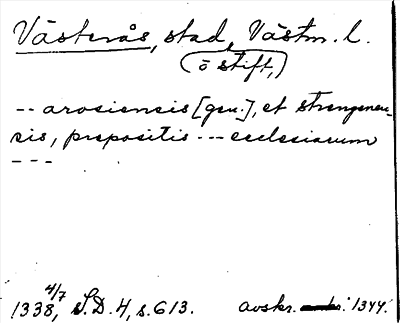 Västerås, stad, Västm. l.
(ö stift,)
-- arosiensis [gen.], et strengenen-
sis, prepositis --- ecclesiarum
---
4/7
1338, S.D. 4, s. 613. avskr. 1344.